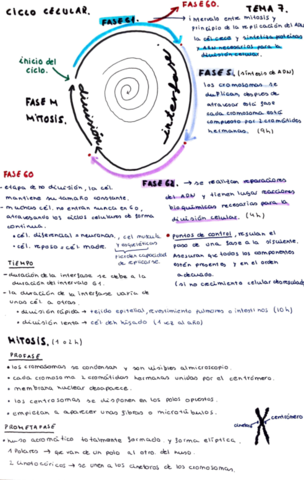 CICLO CELULAR.
FASE G0.
TEMA 7.
FASE G1.
intervalo entre mitosis y
principio de la replicación del ADN
la cél crece y sintetiza proteínas
y ARN necesarias para la
división celular.
inicio del
ciclo.
FASE S. (síntesis de ADN)
los cromosomas se
duplican, después de
atravesar esta fase
cada cromosoma está
compuesto por 2 cromátidas
hermanas. (9h)
FASE M
MITOSIS.
interfase
división
FASE G0
• etapa de no división, la cél
mantiene su tamaño constante.
• muchas cél. no entran nunca en G0,
atravesando los ciclos celulares de forma
continua.
• cél. diferencial = neuronas, cel muscula
• cél. reposo = cél madre.
pierden capacidad
de replicarse.
FASE G2. → se realizan reparaciones
del ADN y tienen lugar reacciones
bioquímicas necesarias para la
división celular. (4h)
• puntos de control, regulan el
paso de una fase a la siguiente.
Aseguran que todos los componentes
estén presente y en el orden
adecuado.
(si no crecimiento celular descontrolado)
TIEMPO
- duración de la interfase se debe a la
duración del intervalo G1.
- la duración de la interfase varía de
unas cél. a otras.
• división rápida → tejido epitelial, revestimiento pulmones o intestinos (10h)
• división lenta → cél del hígado (1 vez al año)
MITOSIS. (1 o 2h)
PROFASE
• los cromosomas se condensan y son visibles al microscopio.
• cada cromosoma 2 cromátidas hermanas unidas por el centrómero.
• membrana nuclear desaparece.
• los centrosomas se disponen en los polos opuestos.
• empiezan a aparecer unas fibras o microtúbulos.
centrómero
cinetocoro
PROMETAFASE
• huso acromático totalmente formado, y forma elíptica.
1 Polares → que van de un polo al otro del huso.
2 Cinetocóricos → se unen a los cinetocoros de los cromosomas.